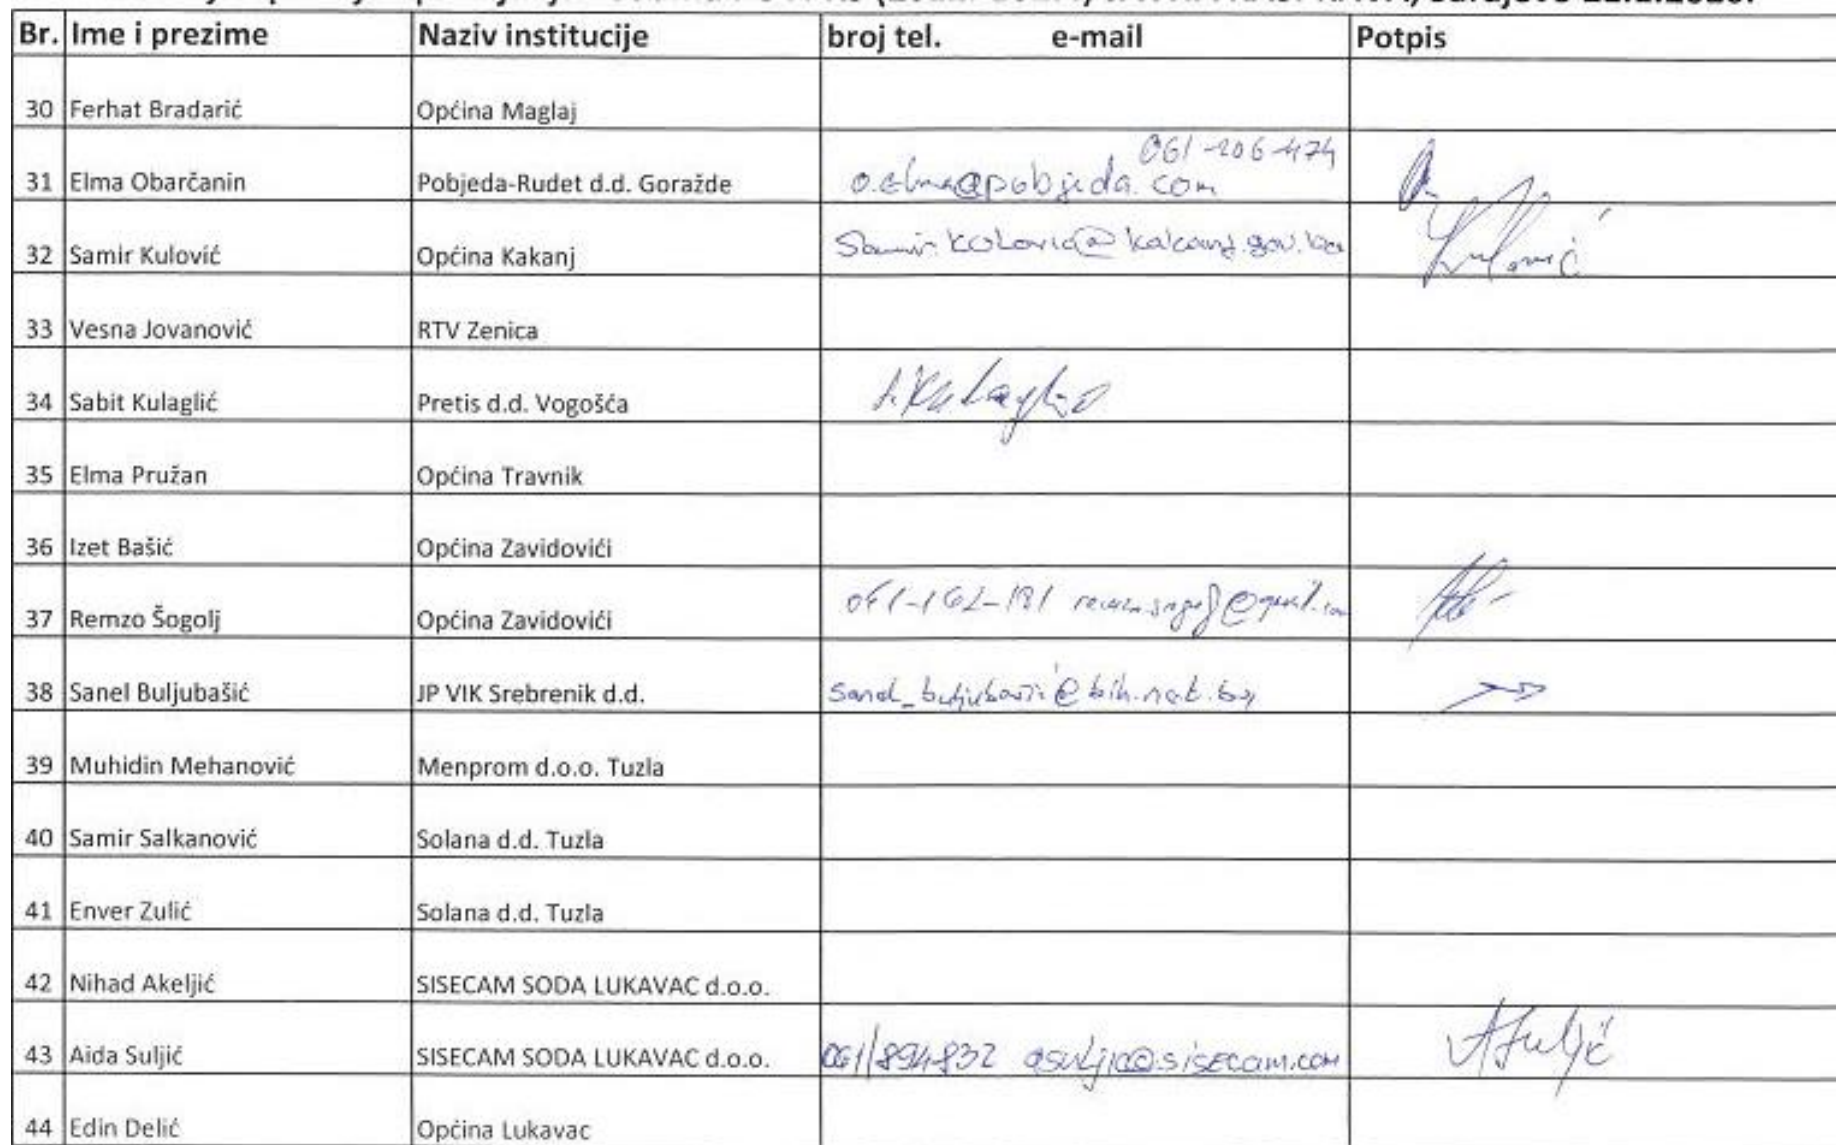 Br. Ime i prezime Naziv institucije broj tel. e-mail Potpis
30 Ferhat Bradarić Općina Maglaj
061-206-474
31 Elma Obarčanin Pobjeda-Rudet d.d. Goražde o.elma@pobjeda.com
32 Samir Kulović Općina Kakanj Samir.kulovic@kakanj.gov.ba Kulović
33 Vesna Jovanović RTV Zenica
34 Sabit Kulaglić Pretis d.d. Vogošća
35 Elma Pružan Općina Travnik
36 Izet Bašić Općina Zavidovići
37 Remzo Šogolj Općina Zavidovići
38 Sanel Buljubašić JP VIK Srebrenik d.d. sanel_buljubasic@bih.net.ba
39 Muhidin Mehanović Menprom d.o.o. Tuzla
40 Samir Salkanović Solana d.d. Tuzla
41 Enver Zulić Solana d.d. Tuzla
42 Nihad Akeljić SISECAM SODA LUKAVAC d.o.o.
43 Aida Suljić SISECAM SODA LUKAVAC d.o.o. 061/894832 asuljic@sisecam.com ASuljić
44 Edin Delić Općina Lukavac